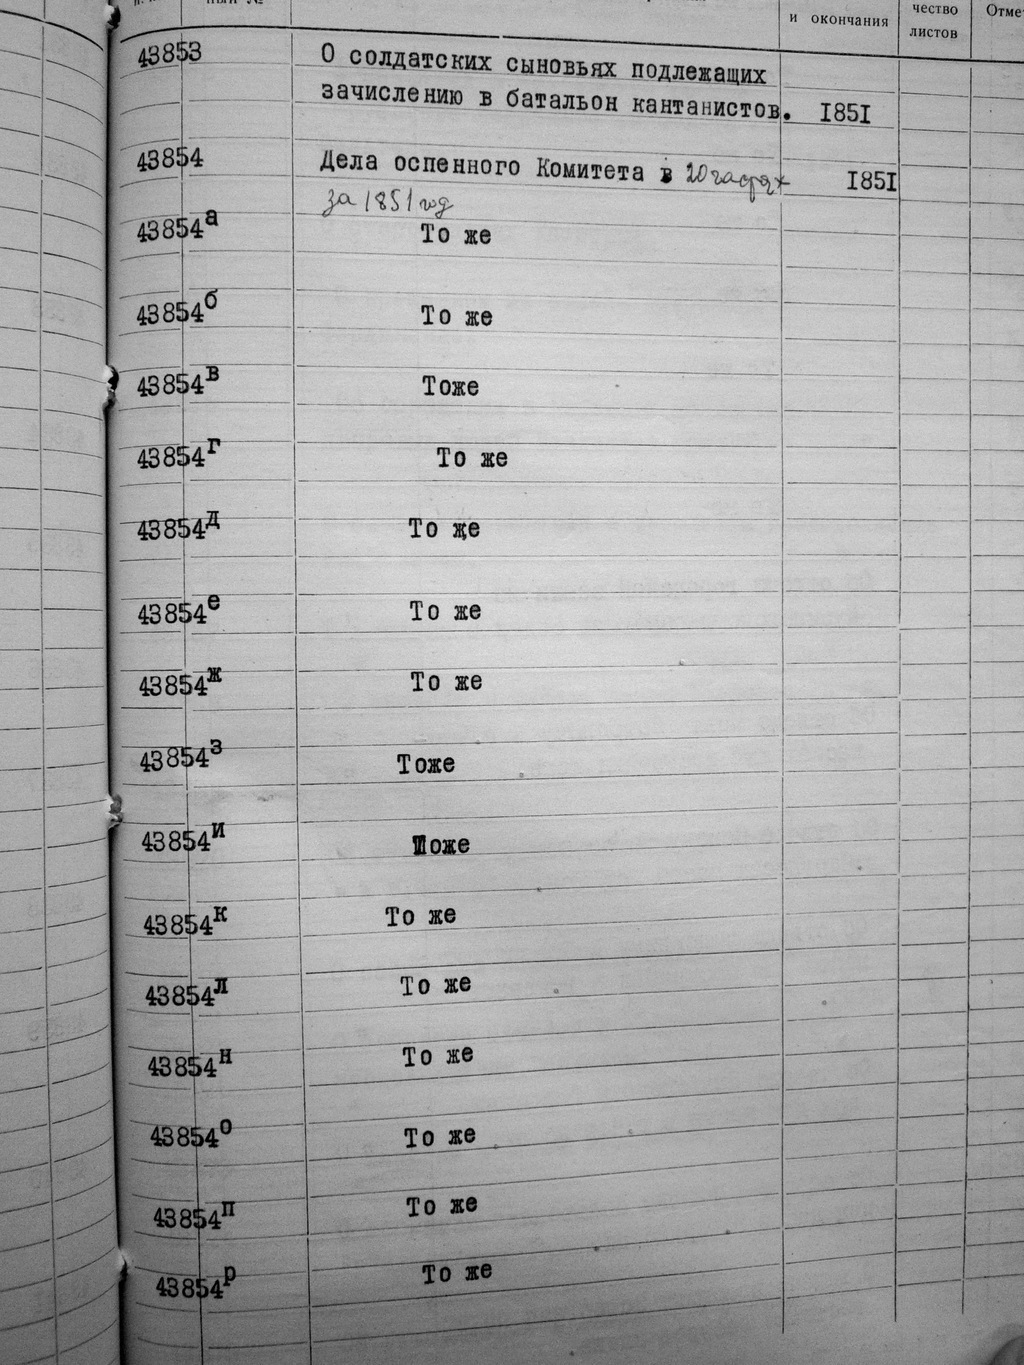 и окончания
чество
листов
Отме
43853 О солдатских сыновьях подлежащих
зачислению в батальон кантанистов. I85I
43854 Дела оспенного Комитета в 20 частях I85I
за 1851 год
43854а То же
43854б То же
43854в Тоже
43854г То же
43854д То же
43854е То же
43854ж То же
43854з Тоже
43854и Тоже
43854к То же
43854л То же
43854н То же
43854о То же
43854п То же
43854р То же